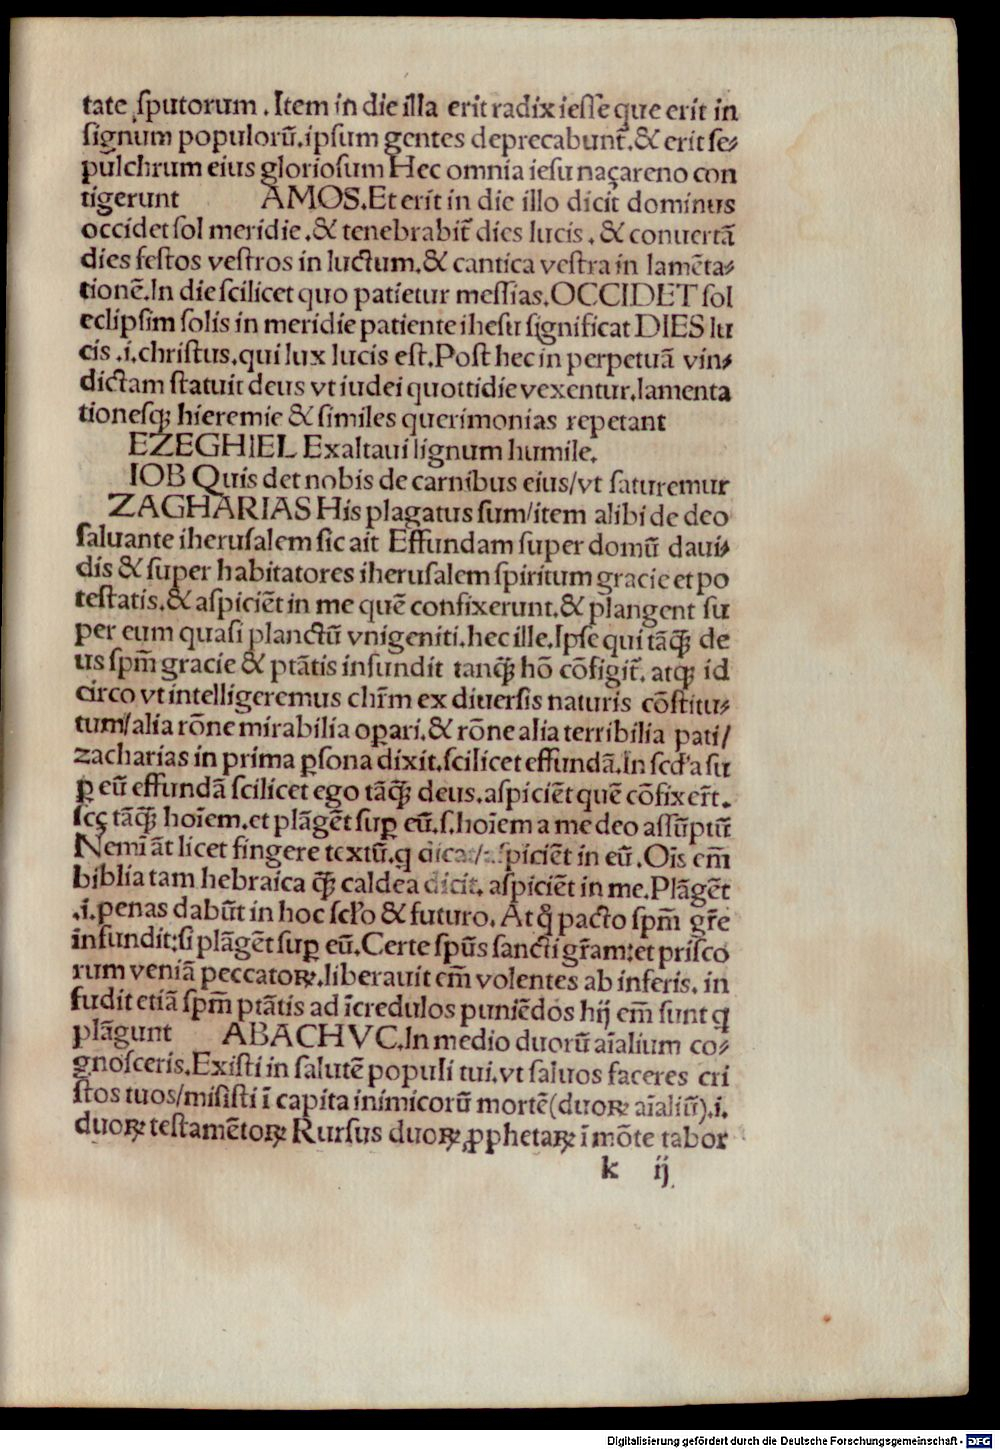 tate sputorum . Item in die illa erit radix iesse que erit in
signum populorū. ipsum gentes deprecabunt̃. & erit se⸗
pulchrum eius gloriosum Hec omnia iesu naçareno con
tigerunt AMOS. Et erit in die illo dicit dominus
occidet sol meridie . & tenebrabit̃ dies lucis . & conuertā
dies festos vestros in luctum. & cantica vestra in lamēta⸗
tionē. In die scilicet quo patietur messias. OCCIDET sol
eclipsim solis in meridie patiente ihesu significat DIES lu
cis .i. christus, qui lux lucis est. Post hec in perpetuā vin⸗
dictam statuit deus vt iudei quottidie vexentur. lamenta
tionesqꝫ hieremie & similes querimonias repetant
EZEGHIEL Exaltaui lignum humile.
IOB Quis det nobis de carnibus eius/vt saturemur
ZAGHARIAS His plagatus sum/item alibi de deo
saluante iherusalem sic ait Effundam super domū daui⸗
dis & super habitatores iherusalem spiritum gracie et po
testatis. & aspiciēt in me quē confixerunt. & plangent su
per eum quasi planctū vnigeniti. hec ille. Ipse qui tāqꝫ̃ de
us spm̃ gracie & ptātis infundit tanqꝫ̃ hō cōfigit̃. atqꝫ id
circo vt intelligeremus chr̃m ex diuersis naturis cōstitu⸗
tum/alia rōne mirabilia oꝑari. & rōne alia terribilia pati/
zacharias in prima ꝑsona dixit. scilicet effundā. In scd'a su
ꝑ eū effundā scilicet ego tāqꝫ̃ deus. aspiciēt quē cōfixer̃t .
scꝫ tāqꝫ̃ hoīem. et plāgēt suꝑ eū. s. hoīem a me deo assūptū
Nemī āt licet fingere textū. q aspiciēt in eū. Oīs em̄
biblia tam hebraica qꝫ̃ caldea dicit. aspiciēt in me. Plāgēt
.i. penas dabūt in hoc sc̃lo & futuro. At q̊ pacto spm̃ gr̃e
infundit: si plāgēt suꝑ eū. Certe spūs sancti gr̃am: et prisco
rum veniā peccatoꝝ. liberauit em̄ volentes ab inferis. in
fudit etiā spm̃ ptātis ad īcredulos puniēdos hij em̄ sunt q
plāgunt ABACHVC. In medio duorū aīalium co⸗
gnosceris. Existi in salutē populi tui. vt saluos faceres cri
stos tuos/misisti ī capita inimicorū mortē (duoꝝ aīaliū).i.
duoꝝ testamētoꝝ Rursus duoꝝ ꝓphetaꝝ ī mōte tabor
k ij
Digitalisierung gefördert durch die Deutsche Forschungsgemeinschaft - DFG